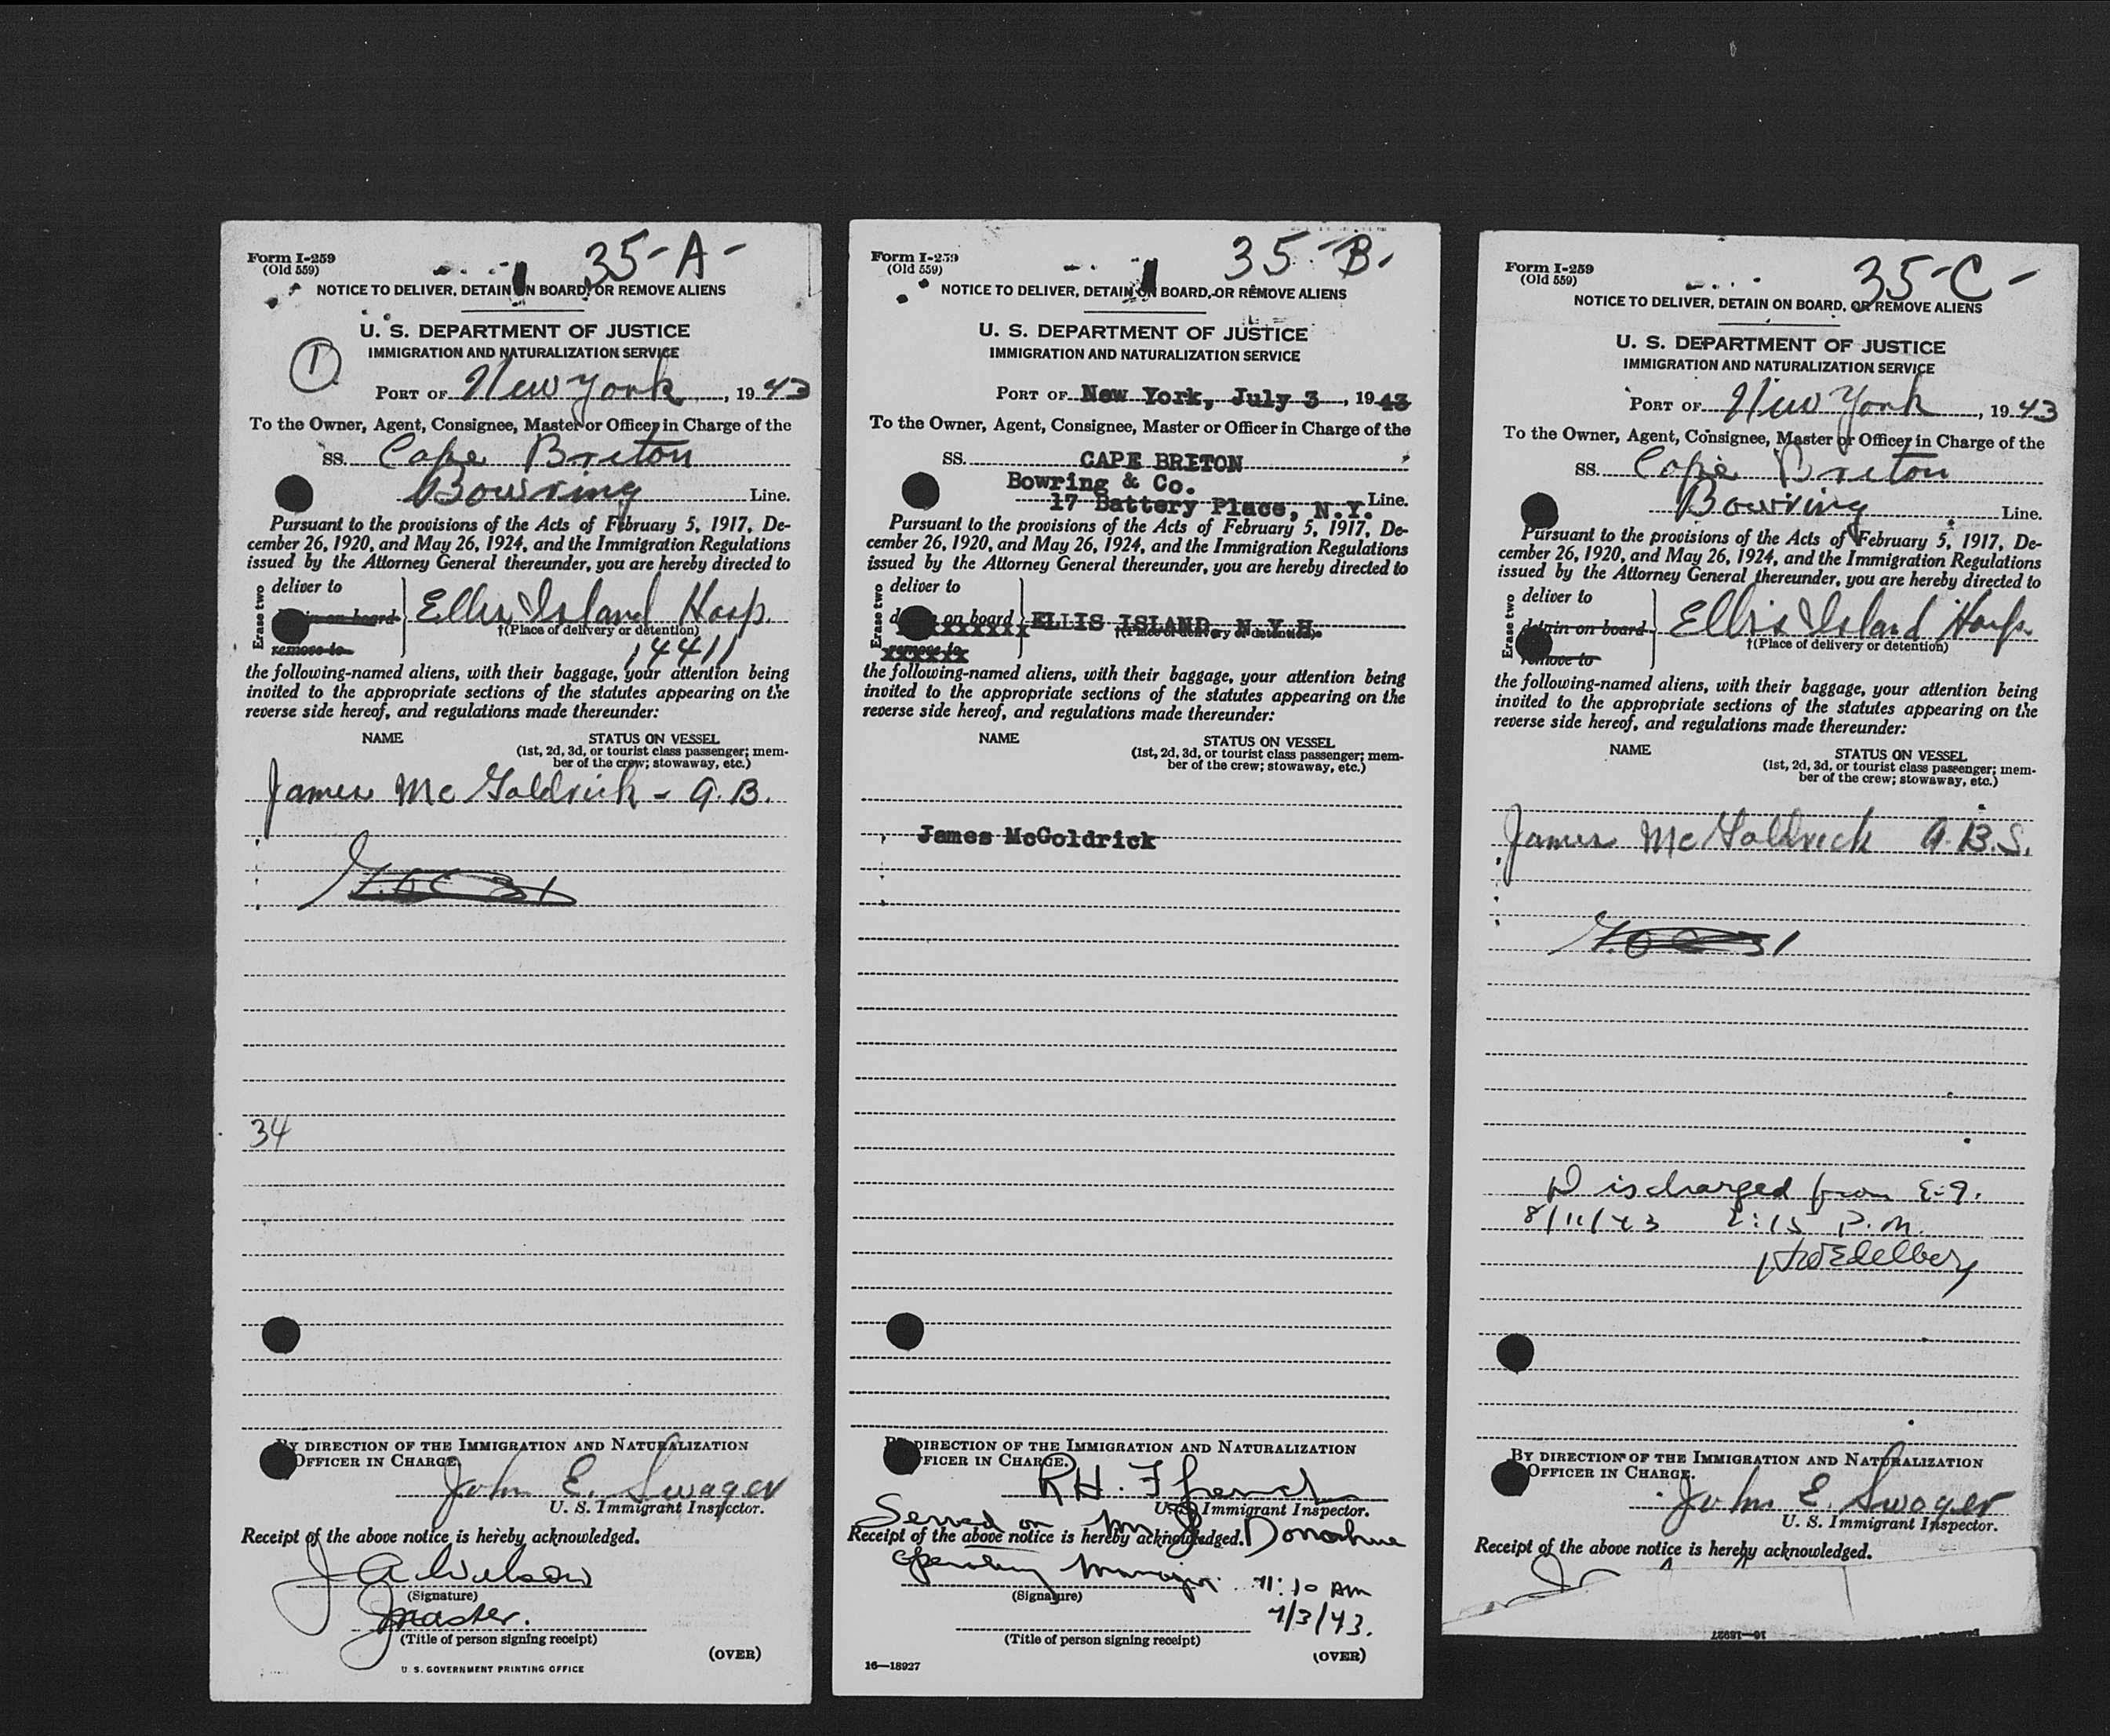 Form I-259
(Old 559)
35-A-
NOTICE TO DELIVER, DETAIN ON BOARD, OR REMOVE ALIENS
U. S. DEPARTMENT OF JUSTICE
IMMIGRATION AND NATURALIZATION SERVICE
1
PORT OF New York, 1943
To the Owner, Agent, Consignee, Master or Officer in Charge of the
SS. Cape Briton
Bowring Line.
Pursuant to the provisions of the Acts of February 5, 1917, De-
cember 26, 1920, and May 26, 1924, and the Immigration Regulations
issued by the Attorney General thereunder, you are hereby directed to
Erase two
deliver to
on board
remove to
Ellis Island Hosp.
†(Place of delivery or detention)
14411
the following-named aliens, with their baggage, your attention being
invited to the appropriate sections of the statutes appearing on the
reverse side hereof, and regulations made thereunder:
NAME STATUS ON VESSEL
(1st, 2d, 3d, or tourist class passenger; mem-
ber of the crew; stowaway, etc.)
James McGoldrick - A.B.
34
BY DIRECTION OF THE IMMIGRATION AND NATURALIZATION
OFFICER IN CHARGE.
John E. Swager
U. S. Immigrant Inspector.
Receipt of the above notice is hereby acknowledged.
J A Wilson
(Signature)
Master.
(Title of person signing receipt)
(OVER)
U. S. GOVERNMENT PRINTING OFFICE
Form I-259
(Old 559)
35-B-
NOTICE TO DELIVER, DETAIN ON BOARD, OR REMOVE ALIENS
U. S. DEPARTMENT OF JUSTICE
IMMIGRATION AND NATURALIZATION SERVICE
PORT OF New York, July 3, 1943
To the Owner, Agent, Consignee, Master or Officer in Charge of the
SS. CAPE BRITON
Bowring & Co.
17 Battery Place, N.Y. Line.
Pursuant to the provisions of the Acts of February 5, 1917, De-
cember 26, 1920, and May 26, 1924, and the Immigration Regulations
issued by the Attorney General thereunder, you are hereby directed to
Erase two
deliver to
on board
remove to
ELLIS ISLAND, N.Y.H.
†(Place of delivery or detention)
the following-named aliens, with their baggage, your attention being
invited to the appropriate sections of the statutes appearing on the
reverse side hereof, and regulations made thereunder:
NAME STATUS ON VESSEL
(1st, 2d, 3d, or tourist class passenger; mem-
ber of the crew; stowaway, etc.)
James McGoldrick
BY DIRECTION OF THE IMMIGRATION AND NATURALIZATION
OFFICER IN CHARGE.
R H. French
U. S. Immigrant Inspector.
Served on Mr J Donahue
Receipt of the above notice is hereby acknowledged.
Operating Manager 11:10 AM
(Signature)
7/3/43.
(Title of person signing receipt)
(OVER)
16—18927
Form I-259
(Old 559)
35-C-
NOTICE TO DELIVER, DETAIN ON BOARD, OR REMOVE ALIENS
U. S. DEPARTMENT OF JUSTICE
IMMIGRATION AND NATURALIZATION SERVICE
PORT OF New York, 1943
To the Owner, Agent, Consignee, Master or Officer in Charge of the
SS. Cape Briton
Bowring Line.
Pursuant to the provisions of the Acts of February 5, 1917, De-
cember 26, 1920, and May 26, 1924, and the Immigration Regulations
issued by the Attorney General thereunder, you are hereby directed to
Erase two
deliver to
detain on board
remove to
Ellis Island Hosp.
†(Place of delivery or detention)
the following-named aliens, with their baggage, your attention being
invited to the appropriate sections of the statutes appearing on the
reverse side hereof, and regulations made thereunder:
NAME STATUS ON VESSEL
(1st, 2d, 3d, or tourist class passenger; mem-
ber of the crew; stowaway, etc.)
James McGoldrick A.B.S.
Discharged from E.I.
8/11/43 2:15 P.M.
Edelberg
BY DIRECTION OF THE IMMIGRATION AND NATURALIZATION
OFFICER IN CHARGE.
John E. Swager
U. S. Immigrant Inspector.
Receipt of the above notice is hereby acknowledged.
16—18927